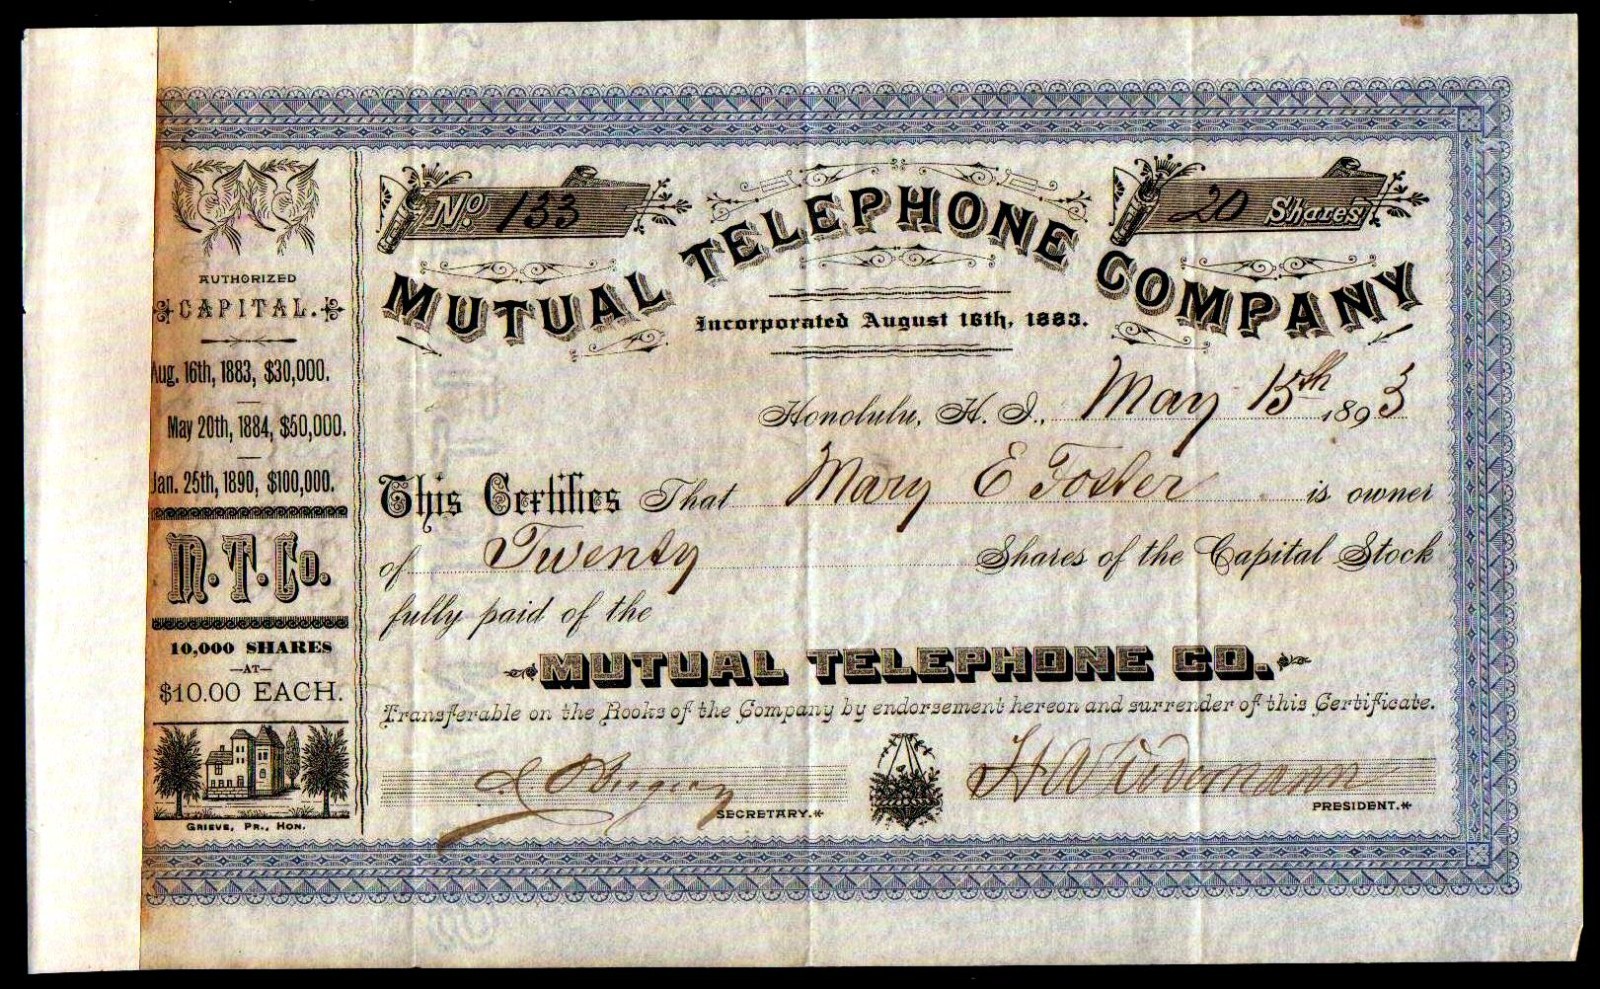 AUTHORIZED
CAPITAL.
Aug. 16th, 1883, $30,000.
May 20th, 1884, $50,000.
Jan. 25th, 1890, $100,000.
M. T. Co.
10,000 SHARES
—AT—
$10.00 EACH.
GRIEVE, PR., HON.
No. 133
20 Shares
MUTUAL TELEPHONE COMPANY
Incorporated August 16th, 1883.
Honolulu, H. I., May 15th 1893
This Certifies That Mary E Foster is owner
of Twenty Shares of the Capital Stock
fully paid of the
MUTUAL TELEPHONE CO.
Transferable on the Books of the Company by endorsement hereon and surrender of this Certificate.
SECRETARY.
H A Widemann
PRESIDENT.